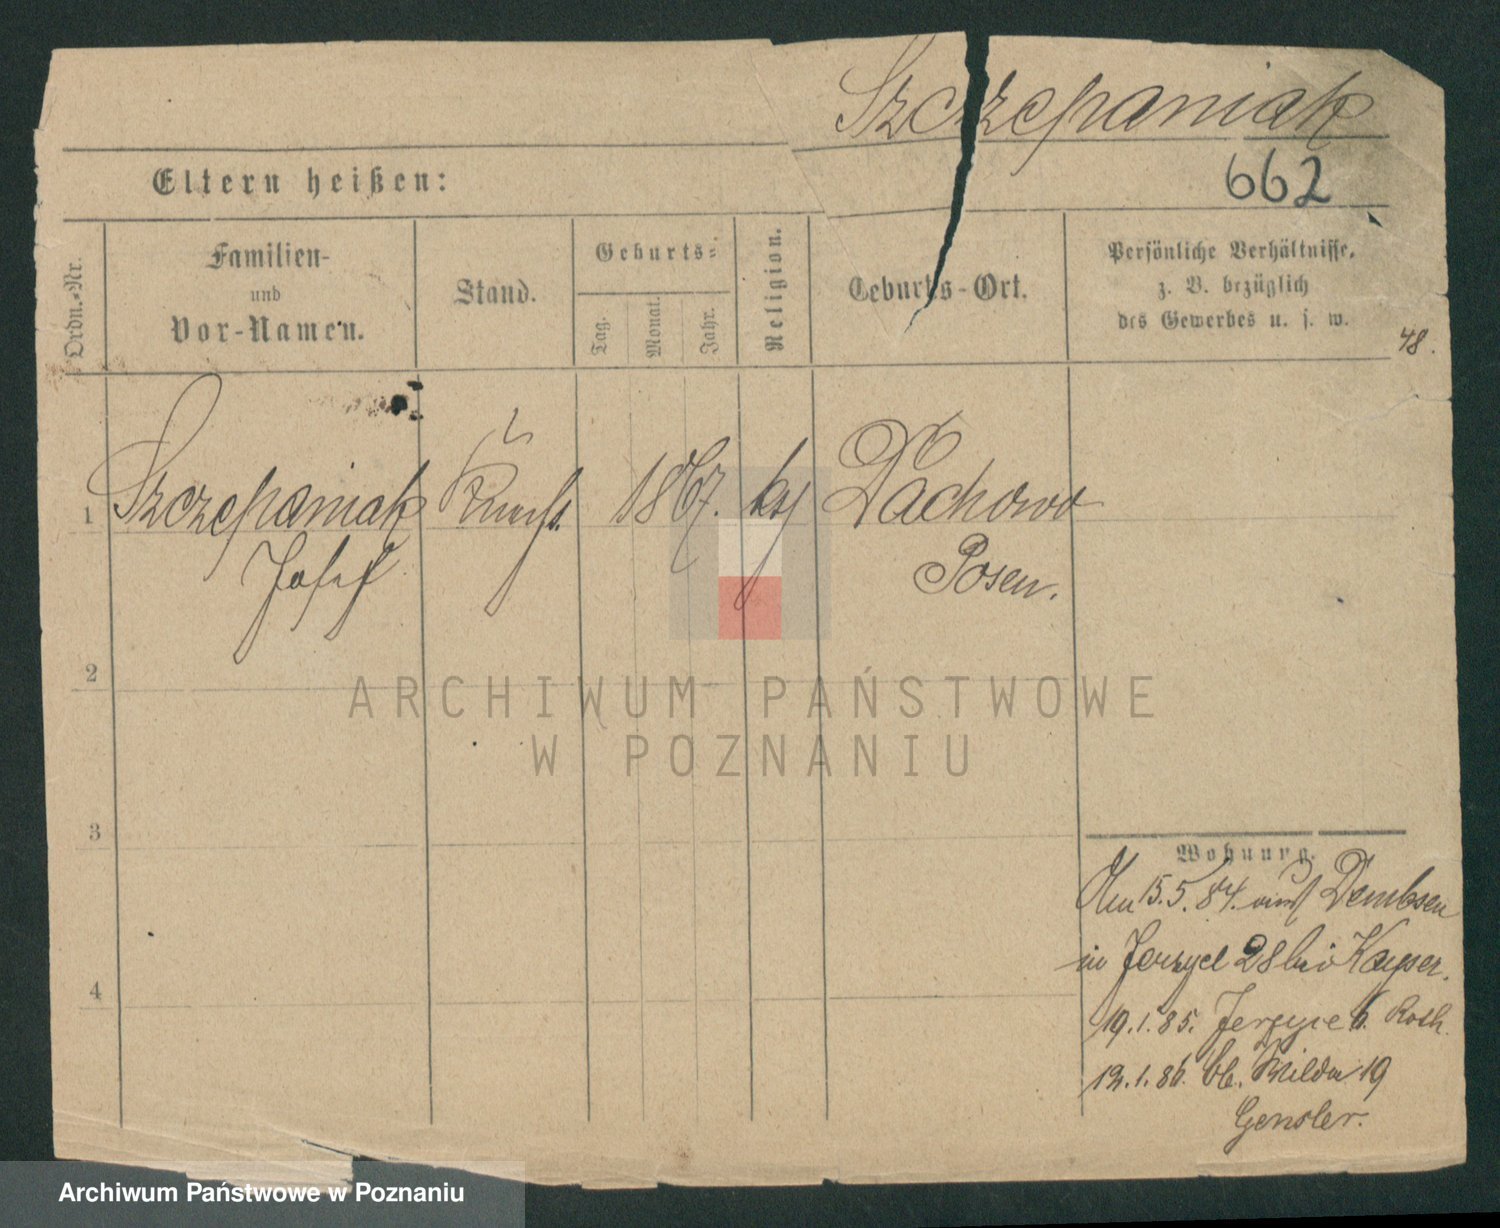 Szczepaniak
662
Eltern heißen:
Ordn.-Nr.
Familien-
und
Vor-Namen.
Stand.
Geburts-
Tag.
Monat.
Jahr.
Religion.
Geburts-Ort.
Persönliche Verhältnisse,
z. B. bezüglich
des Gewerbes u. s. w.
48.
1 Szczepaniak Knecht 1867. kth Dachowo
Josef Posen.
2
3
4
Wohnung.
Am 15.5.84. aus Dembsen
in Jerzyce 28 bei Kayser.
19.1.85. Jerzyce b. Roth.
12.1.86. Wilda 19
Gensler.
ARCHIWUM PAŃSTWOWE
W POZNANIU
Archiwum Państwowe w Poznaniu